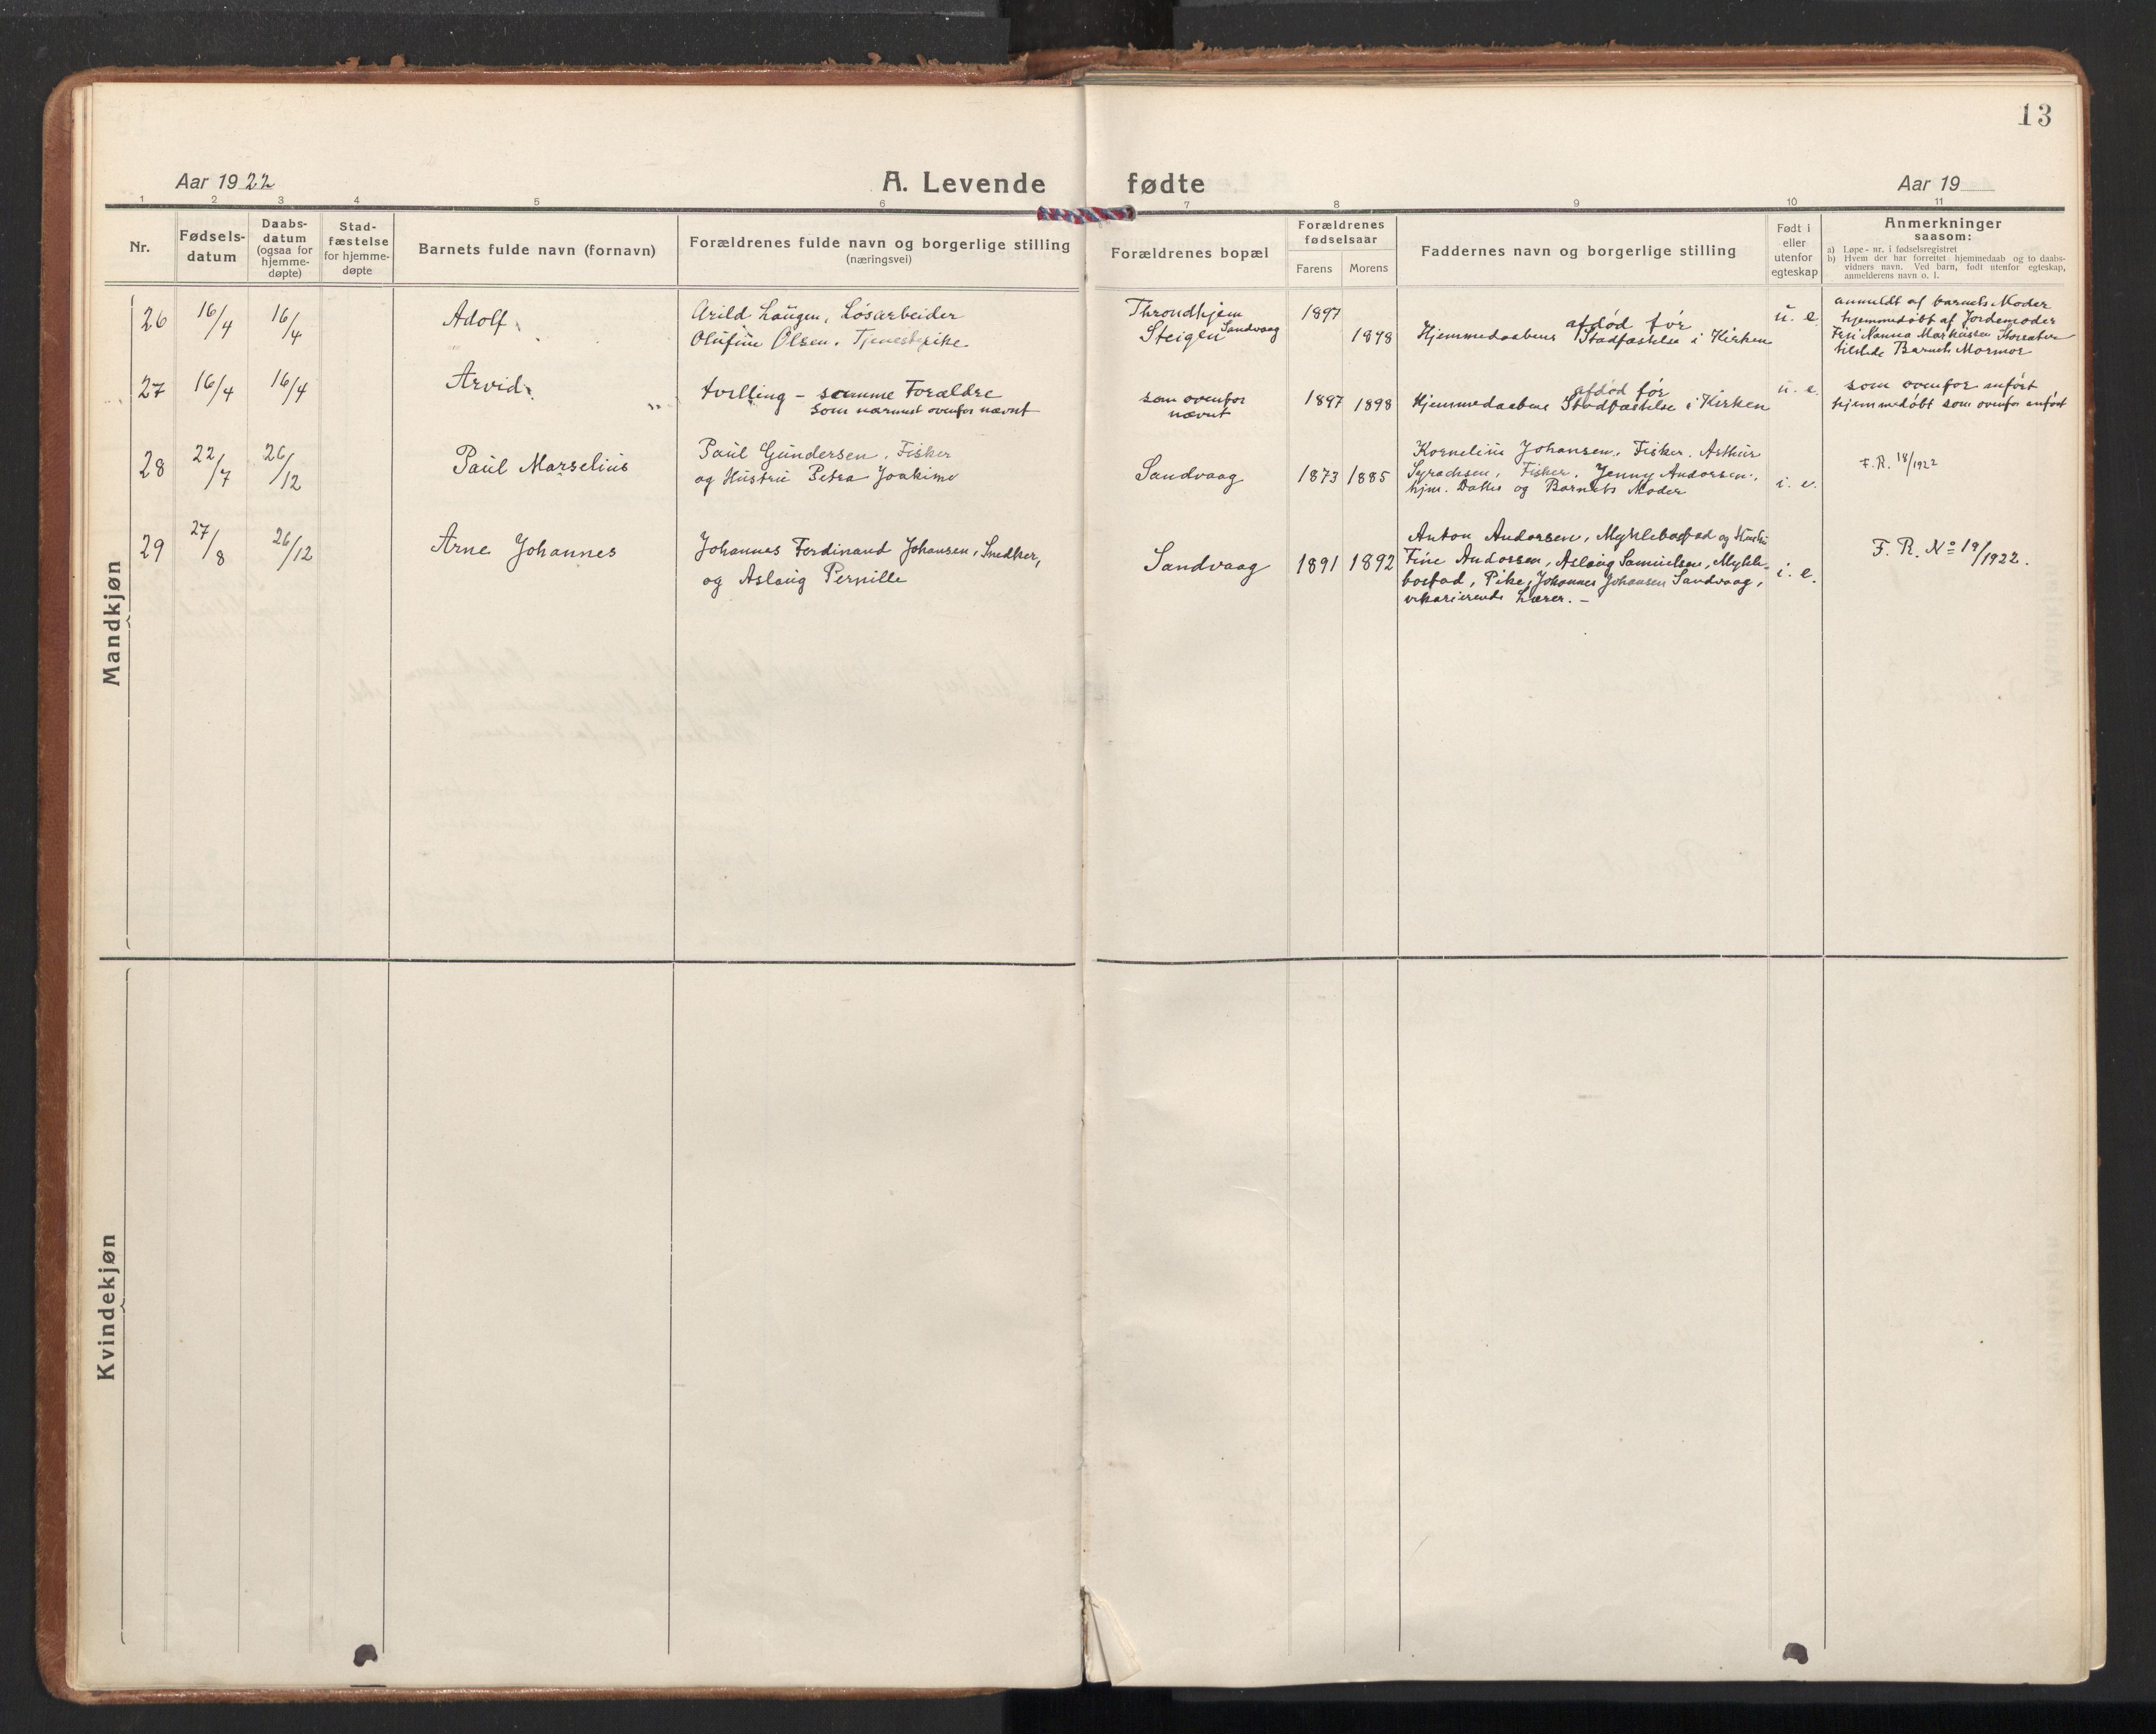 13
Aar 1922
A. Levende fødte
Aar 19
1 2 3 4 5 6 7 8 9 10 11
Nr.
Fødsels-
datum
Daabs-
datum
(ogsaa for
hjemme-
døpte)
Stad-
fæstelse
for hjemme-
døpte
Barnets fulde navn (fornavn)
Forældrenes fulde navn og borgerlige stilling
(næringsvei)
Forældrenes bopæl
Forældrenes
fødselsaar
Farens Morens
Faddernes navn og borgerlige stilling
Født i
eller
utenfor
egteskap
Anmerkninger
saasom:
a) Løpe-nr. i fødselsregistret
b) Hvem der har forrettet hjemmedaab og to daabs-
vidners navn. Ved barn, født utenfor egteskap,
anmelderens navn o. l.
Mandkjøn
26 16/4 16/4 Adolf.
Arild Laugen, Løsarbeider
Olufine Olsen, Tjenestepike
Throndhjem
Steigen Sandvaag
1897
1898
afdød før
Hjemmedaabens Stadfæstelse i Kirken
u. e.
anmeldt af barnets Moder
hjemmedøbt af Jordemoder
Nanna Markussen
tilstede Barnets Mormor
27 16/4 16/4 Arvid.
tvilling – samme Forældre
som nærmest ovenfor nævnt
som ovenfor
nævnt
1897 1898
afdød før
Hjemmedaabens Stadfæstelse i Kirken
u. e.
som ovenfor anført
hjemmedøbt som ovenfor anført
28 22/7 26/12 Paul Marselius
Paul Gundersen, Fisker
og Hustru Petra Joakime
Sandvaag
1873 1885
Kornelius Johansen, Fisker. Arthur
Syrachsen, Fisker, Jenny Andorsen,
hjm. Datter og Barnets Moder
i. e.
F. R. 18/1922
29 27/8 26/12 Arne Johannes
Johannes Ferdinand Johansen, Snedker,
og Aslaug Pernille
Sandvaag
1891 1892
Anton Andorsen, Myklebostad og Hustru
Fine Andorsen, Aslaug Samuelsen, Mykle-
bostad, Pike, Johannes Johansen Sandvaag,
vikarierende Lærer. –
i. e.
F. R. No 19/1922.
Kvindekjøn